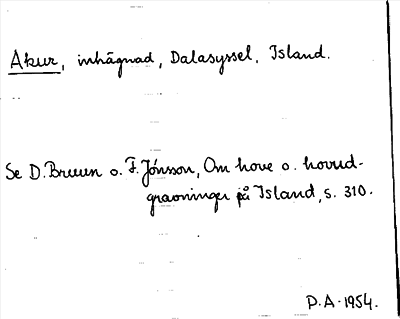 Akur, inhägnad, Dalasyssel, Island.
Se D. Bruun o. F. Jónsson, Om hove o. hovud-
gravninger på Island, s. 310.
P.A. 1954.